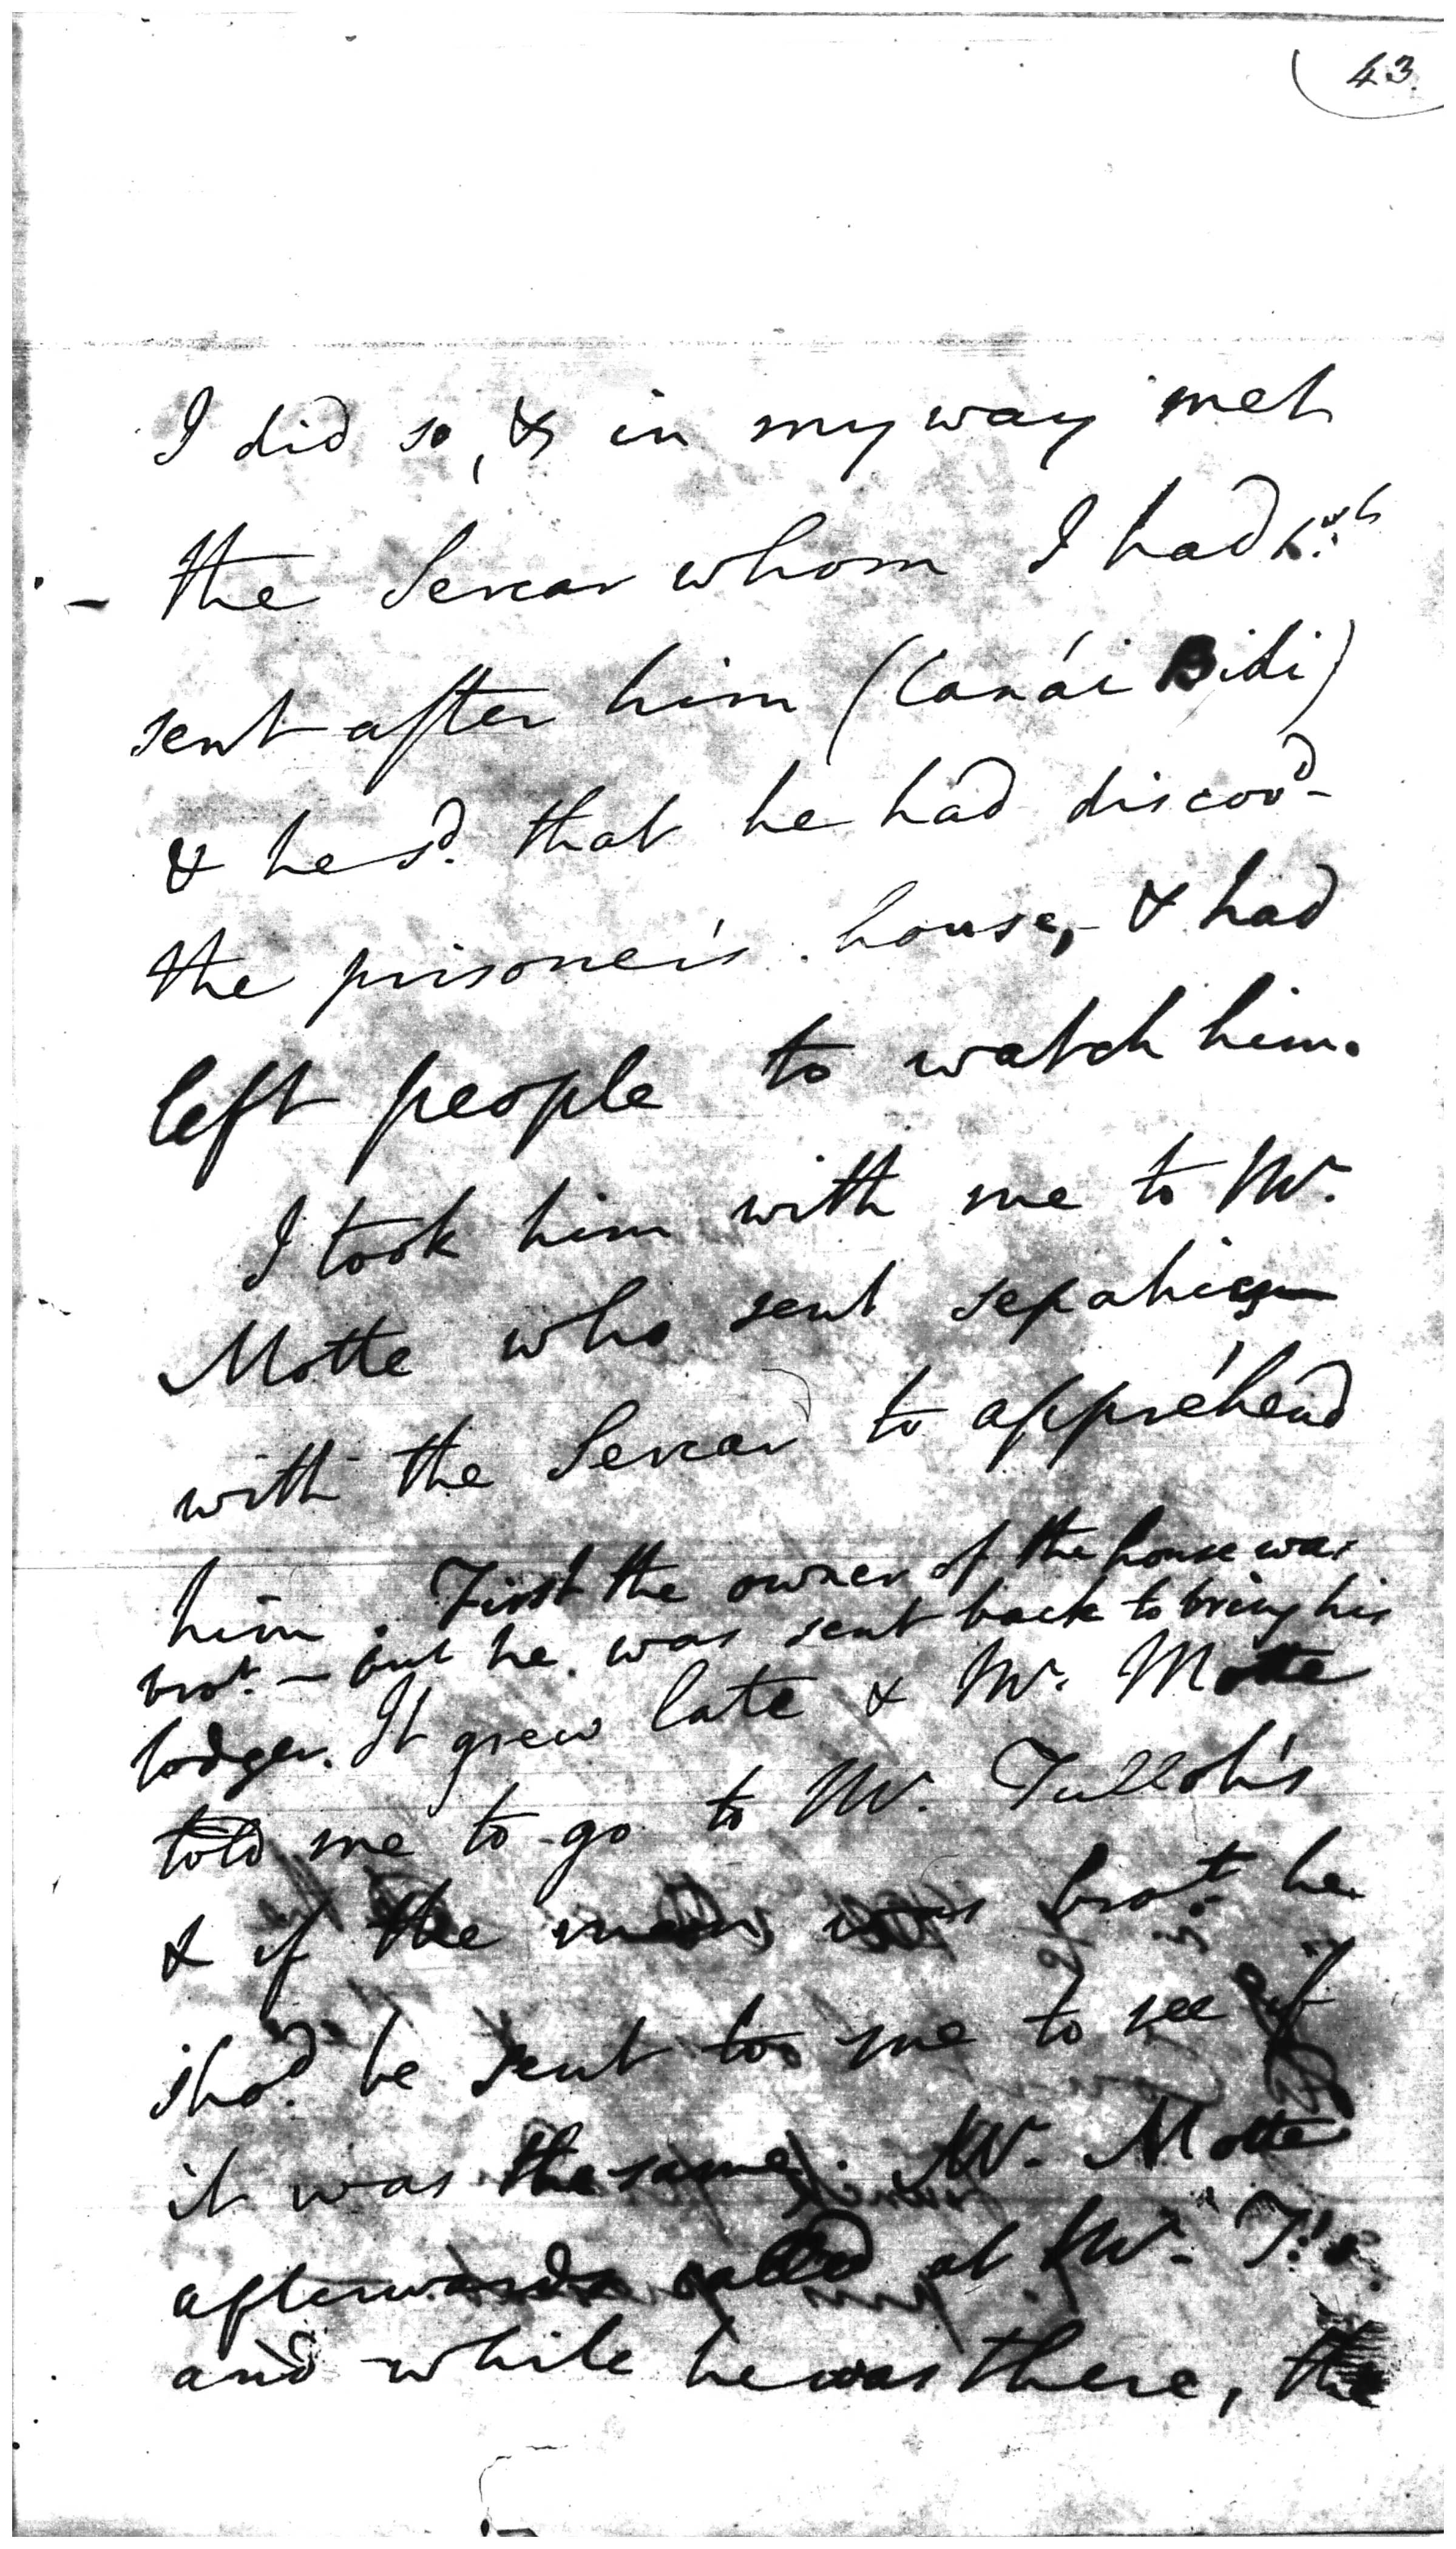 43.
I did so, & in my way met
the Sercar whom I had
sent after him (Canái Bidi)
& he sd. that he had discovd
the prisoner's house, & had
left people to watch him.
I took him with me to Mr.
Motte who sent sepahies
with the Sercar to apprehend
him. First the owner of the house was
brot. – but he was sent back to bring his
lodger. It grew late & Mr. Motte
told me to go to Mr. Tulloh's
& if the man was brot. he
shod. be sent to me to see if
it was the same. Mr. Motte
afterwards called at Mr. T.'s
and while he was there, the